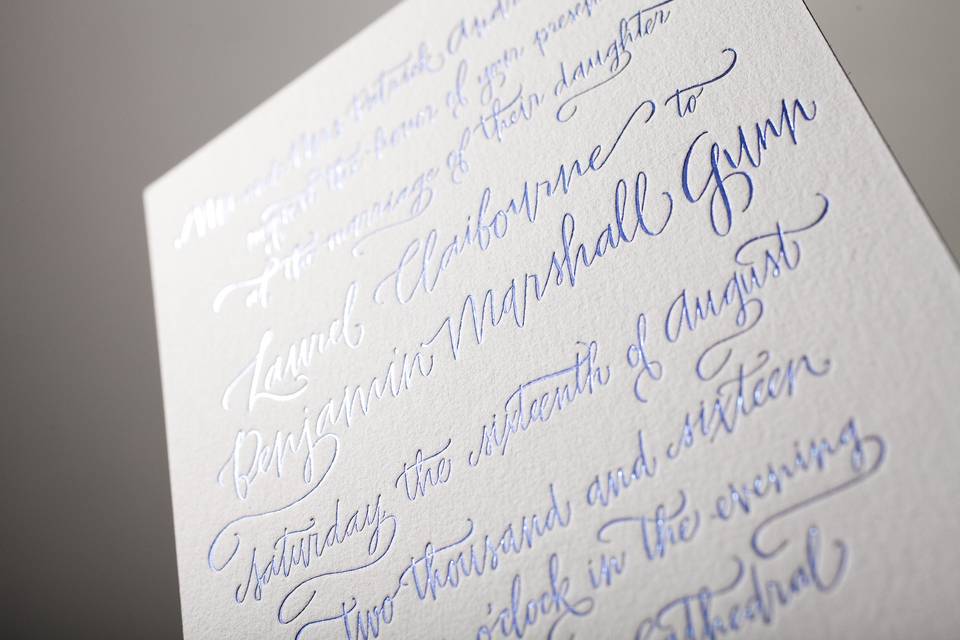 Mr. and Mrs. Patrick
request the honor of your presence
at the marriage of their daughter
Laurel Claibourne to
Benjamin Marshall Gunn
saturday the sixteenth of august
two thousand and sixteen
o'clock in the evening
Cathedral